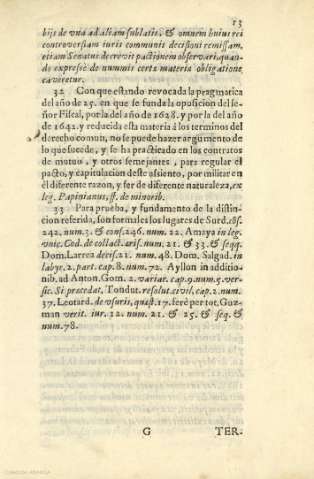 13
bijs de una ad aliam sublatis, & omnem huius rei
controversiam iuris communis decisioni remissam,
etiam Senatus decrevit pactionem observari, quan-
do expressè de nummis certa materia obligatione
caveretur.
32 Con que estando revocada la pragmatica
del año de 25. en que se funda la oposicion del se-
ñor Fiscal, por la del año de 1628. y por la del año
de 1642. y reducida esta materia à los terminos del
derecho comun, no se puede hazer argumento de
lo que sucede, y se ha practicado en los contratos
de mutuo, y otros semejantes, para regular el
pacto, y capitulacion deste assiento, por militar en
èl diferente razon, y ser de diferente naturaleza, ex
leg. Papinianus, ff. de minorib.
33 Para prueba, y fundamento de la distin-
cion referida, son formales los lugares de Surd. cōs.
242. num. 3. & cons. 246. num. 22. Amaya in leg.
unic. Cod. de collat. æris. num. 21. & 33. & seqq.
Dom. Larrea decis. 21. num. 48. Dom. Salgad. in
labyr. 2. part. cap. 8. num. 72. Ayllon in additio-
nib. ad Anton. Gom. 2. variar. cap. 9. num. 5. ver-
sic. Si præcedat. Tondut. resolut. civil. cap. 2. num.
37. Leotard. de usuris, quæst. 17. ferè per tot. Guz-
man verit. iur. 12. num. 21. & 25. & seq. &
num. 78.
G TER-